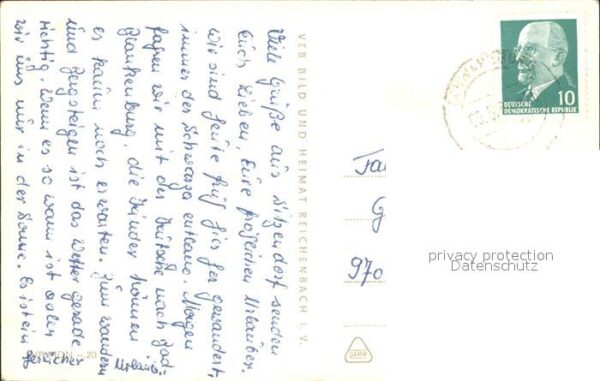 Viele Grüße aus Sitzendorf senden
Euch Lieben, Eure fröhlichen Urlauber.
Wir sind heute früh hierher gewandert,
immer der Schwarza entlang. Morgen
fahren wir mit der Kutsche nach Bad
Blankenburg, die Kinder können
es kaum noch erwarten. Zum wandern
und bergsteigen ist das Wetter gerade
richtig. Wenn es so warm ist aalen
wir uns nur in der Sonne. Es ist ein
herrlicher
Urlaub.
VEB BILD UND HEIMAT REICHENBACH I. V.
20
DEUTSCHE
DEMOKRATISCHE REPUBLIK
10
Fa
G
970
privacy protection
Datenschutz